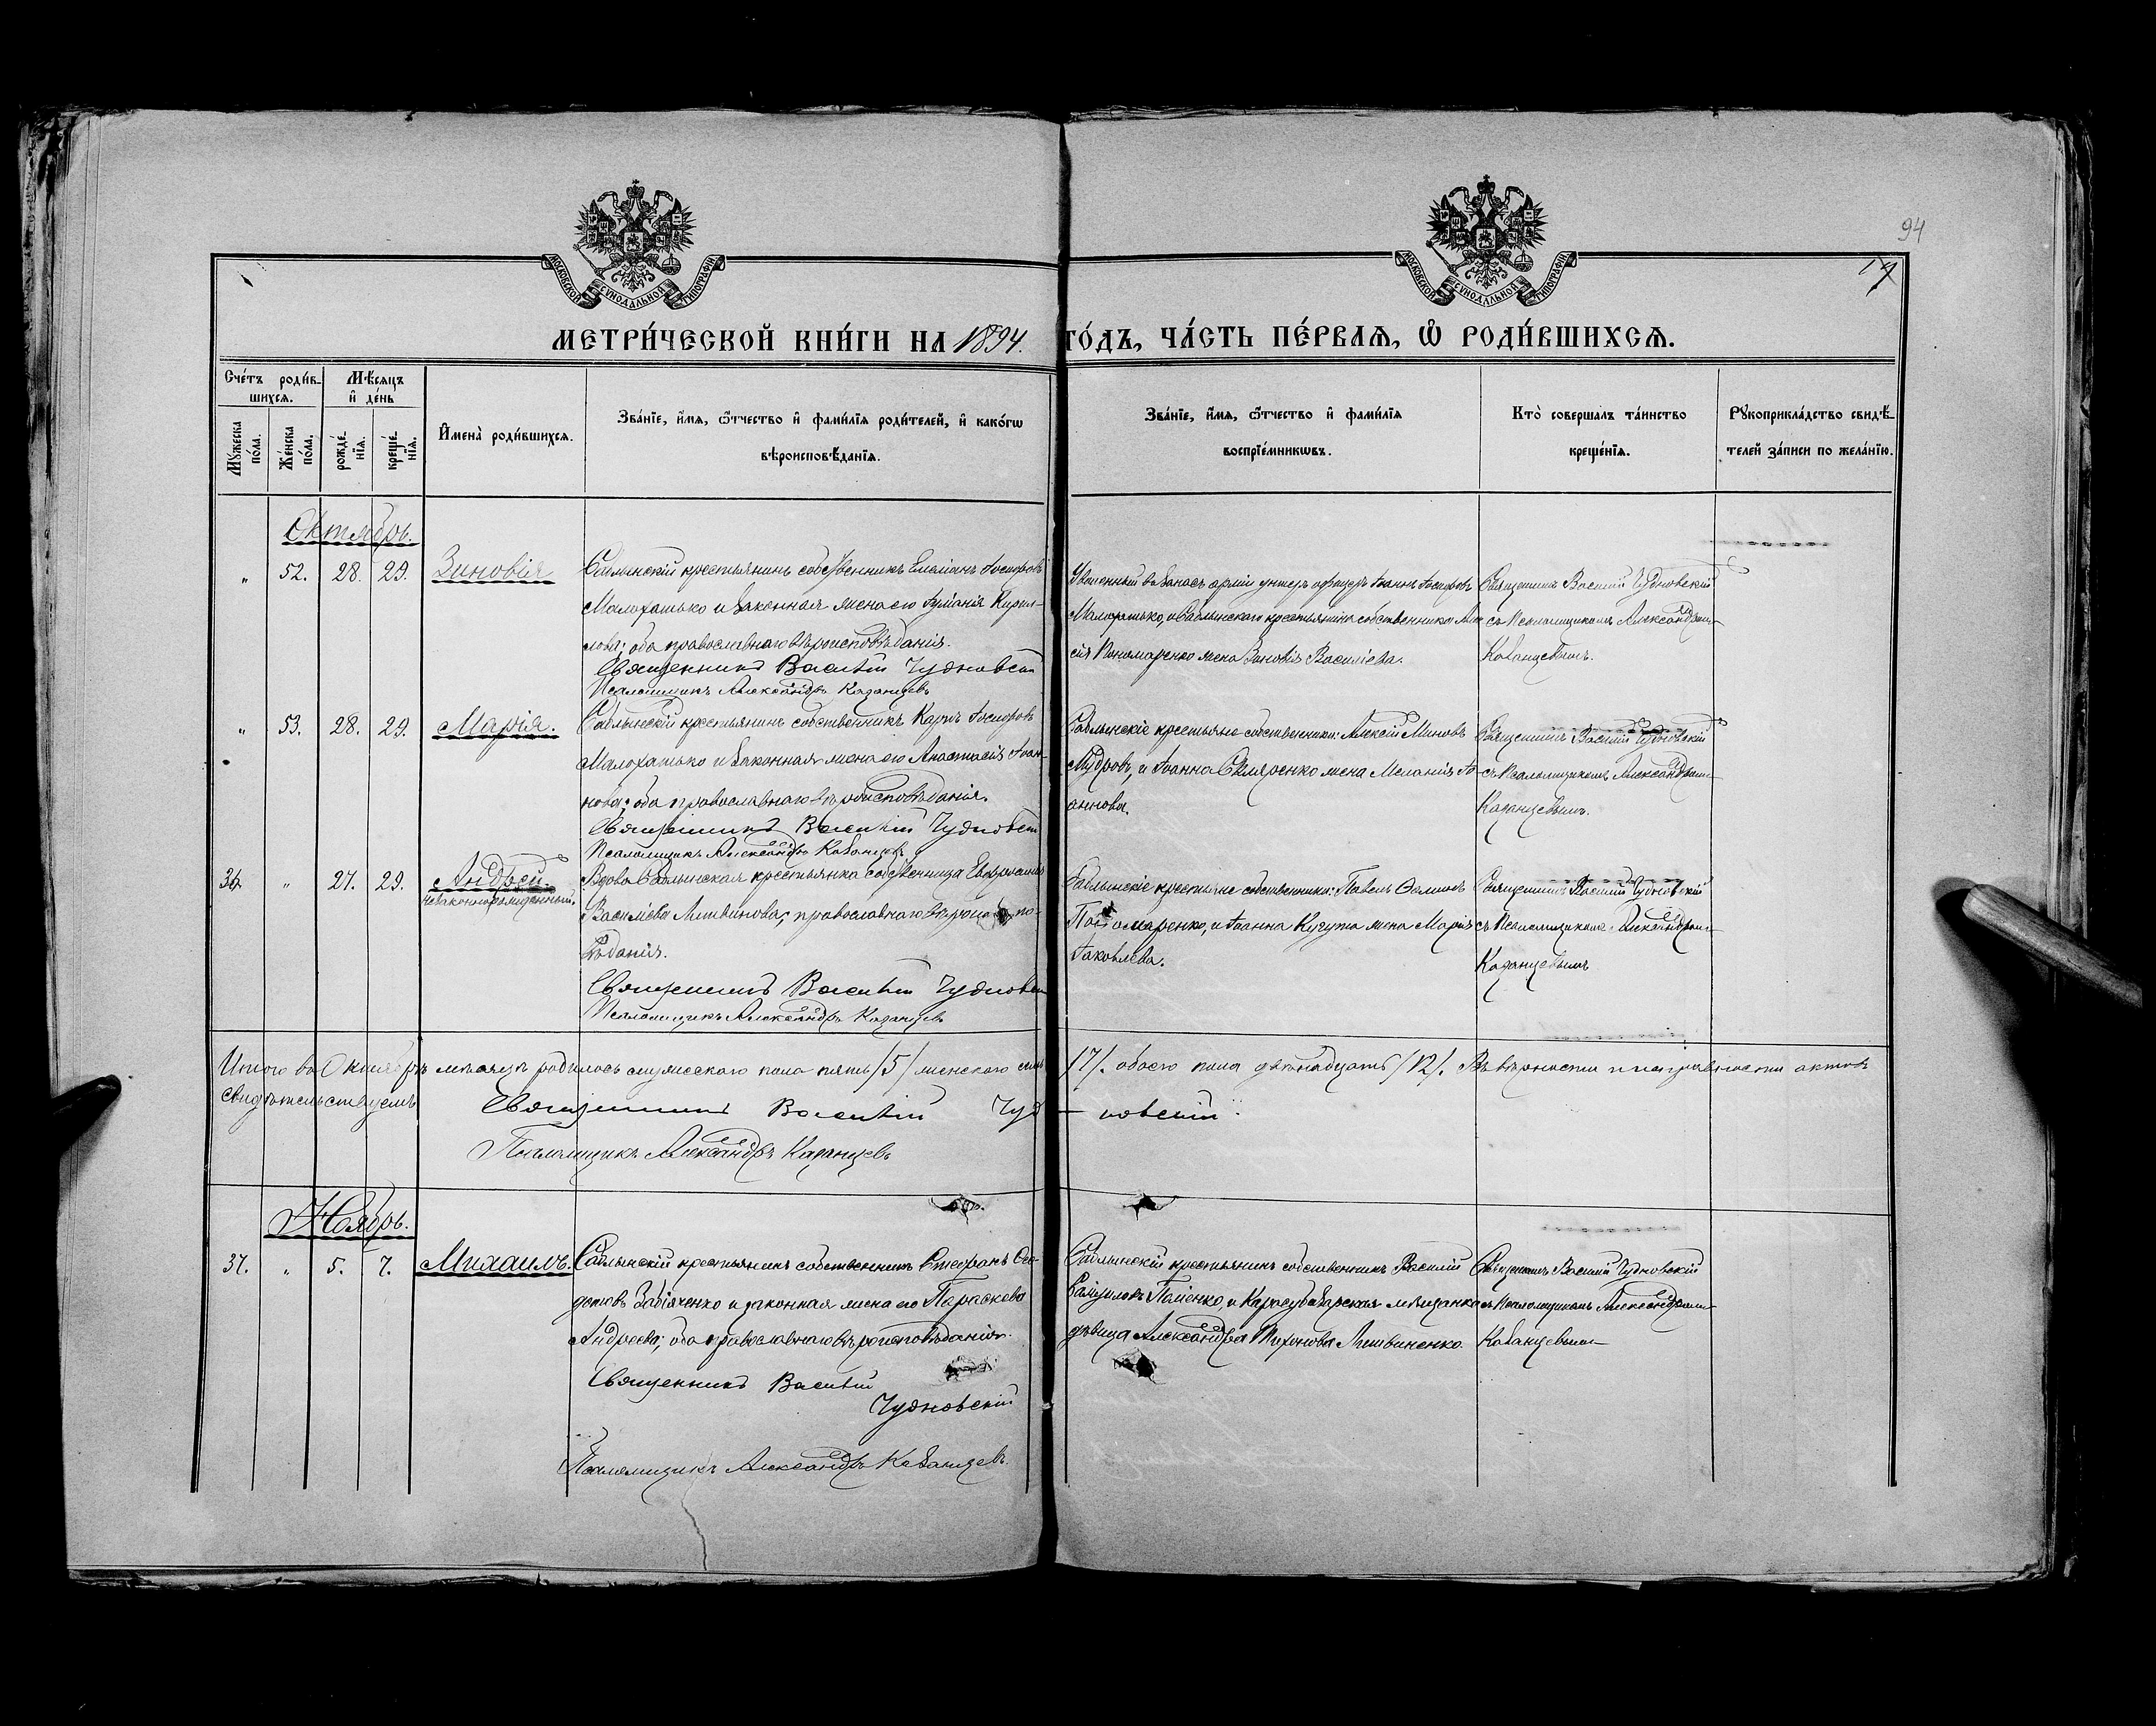 94
17
МОСКОВСКОЙ СѴНОДАЛЬНОЙ ТИПОГРАФІИ
МОСКОВСКОЙ СѴНОДАЛЬНОЙ ТИПОГРАФІИ
МЕТРИ́ЧЕСКОЙ КНИ́ГИ НА 1894. ГО́ДЪ, ЧА́СТЬ ПЕ́РВАѦ, Ѡ҆ РОДИ́ВШИХСѦ.
Сче́тъ роди́вшихсѧ.
Мꙋ́жеска по́ла.
Же́нска по́ла.
Мѣ́сѧцъ и҆ де́нь
рожде́нїѧ.
креще́нїѧ.
И҆мена̀ роди́вшихсѧ.
Зва́нїе, и҆́мѧ, ѻ҆́тчество и҆ фами́лїѧ роди́телей, и҆ како́гѡ
вѣроисповѣ́данїѧ.
Зва́нїе, и҆́мѧ, ѻ҆́тчество и҆ фами́лїѧ
воспрїе́мникѡвъ.
Кто̀ соверша́лъ та́инство
креще́нїѧ.
Рꙋкоприкла́дство свидѣ́-
телей за́писи по жела́нїю.
Октябрь.
" 52. 28. 29. Зиновія
Саблынскій крестьянинъ собственникъ Емеліанъ Іосифовъ
Малохатько и законная жена его Іуліанія Кирил-
лова; оба православнаго вѣроисповѣданія.
Священникъ Василій Чудновскій
Псаломщикъ Александръ Казанцевъ
Уволенный въ запасъ арміи унтеръ офицеръ Іоаннъ Іосифовъ
Малохатько, и Саблынскаго крестьянина собственника Але
сія Пономаренко жена Зиновія Василіева.
Священникъ Василій Чудновскій
съ Псаломщикомъ Александромъ
Казанцевымъ.
" 53. 28. 29. Марія.
Саблынскій крестьянинъ собственникъ Карпъ Іосифовъ
Малохатько и законная жена его Анастасія Іоан-
нова; оба православнаго вѣроисповѣданія.
Священникъ Василій Чудновскій
Псаломщикъ Александръ Казанцевъ
Саблынскіе крестьяне собственники: Алексій Миновъ
Мудровъ, и Іоанна Скляренко жена Меланія Іо-
аннова.
Священникъ Василій Чудновскій
съ Псаломщикомъ Александромъ
Казанцевымъ.
36. " 27. 29. Андрей.
незаконнорожденный.
Вдова Саблынская крестьянка собственница Евфросинія
Василіева Литвинова, православнаго вѣроиспо-
вѣданія.
Священникъ Василій Чудновскій
Псаломщикъ Александръ Казанцевъ
Саблынскіе крестьяне собственники: Павелъ
Пономаренко, и Іоанна Кугута жена Марія
Іаковлева.
Священникъ Василій Чудновскій
съ Псаломщикомъ Александромъ
Казанцевымъ
Итого въ Октябрѣ мѣсяцѣ родилось мужескаго пола пять /5/ женскаго семь /7/. обоего пола двѣнадцать /12/. Въ вѣрности и исправности актовъ
свидѣтельствуемъ Священникъ Василій Чудновскій.
Псаломщикъ Александръ Казанцевъ
Ноябрь.
37. " 5. 7. Михаилъ.
Саблынскій крестьянинъ собственникъ Стефанъ Ѳео-
дотовъ Забіяченко и законная жена его Параскева
Андреева; оба православнаго вѣроисповѣданія.
Священникъ Василій
Чудновскій
Псаломщикъ Александръ Казанцевъ.
Саблынскій крестьянинъ собственникъ Василій
Самуиловъ и Карасубазарская мѣщанка
дѣвица Александра Тихонова Литвиненко.
Священникъ Василій Чудновскій
съ Псаломщикомъ Александромъ
Казанцевымъ